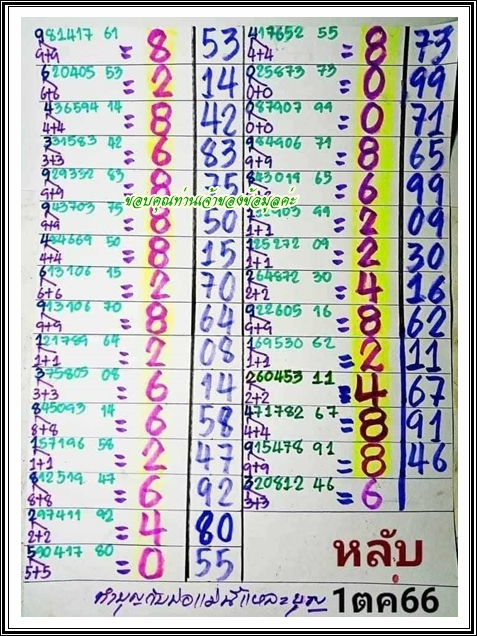 981417 61
9+9 = 8 53
620405 53
6+6 = 2 14
436594 14
4+4 = 8 42
331583 42
3+3 = 6 83
929352 83
9+9 = 8 75
943703 75
9+9 = 8 50
484669 50
4+4 = 8 15
613106 15
6+6 = 2 70
913106 70
9+9 = 8 64
121789 64
1+1 = 2 08
375805 08
3+3 = 6 14
845093 14
8+8 = 6 58
157196 58
1+1 = 2 47
812519 47
8+8 = 6 92
297411 92
2+2 = 4 80
590417 80
5+5 = 0 55
417652 55
4+4 = 8 73
025873 73
0+0 = 0 99
087907 99
0+0 = 0 71
984906 71
9+9 = 8 65
843019 65
= 6 99
ขอบคุณท่านเจ้าของข้อมูลค่ะ
99
1+1 = 2 09
125272 09
1+1 = 2 30
264872 30
2+2 = 4 16
922605 16
9+9 = 8 62
169530 62
1+1 = 2 11
260453 11
2+2 = 4 67
471782 67
4+4 = 8 91
915478 91
9+9 = 8 46
320812 46
3+3 = 6
หลับ
ทำบุญกับพ่อแม่นี่แหละบุญ
1ตุค66